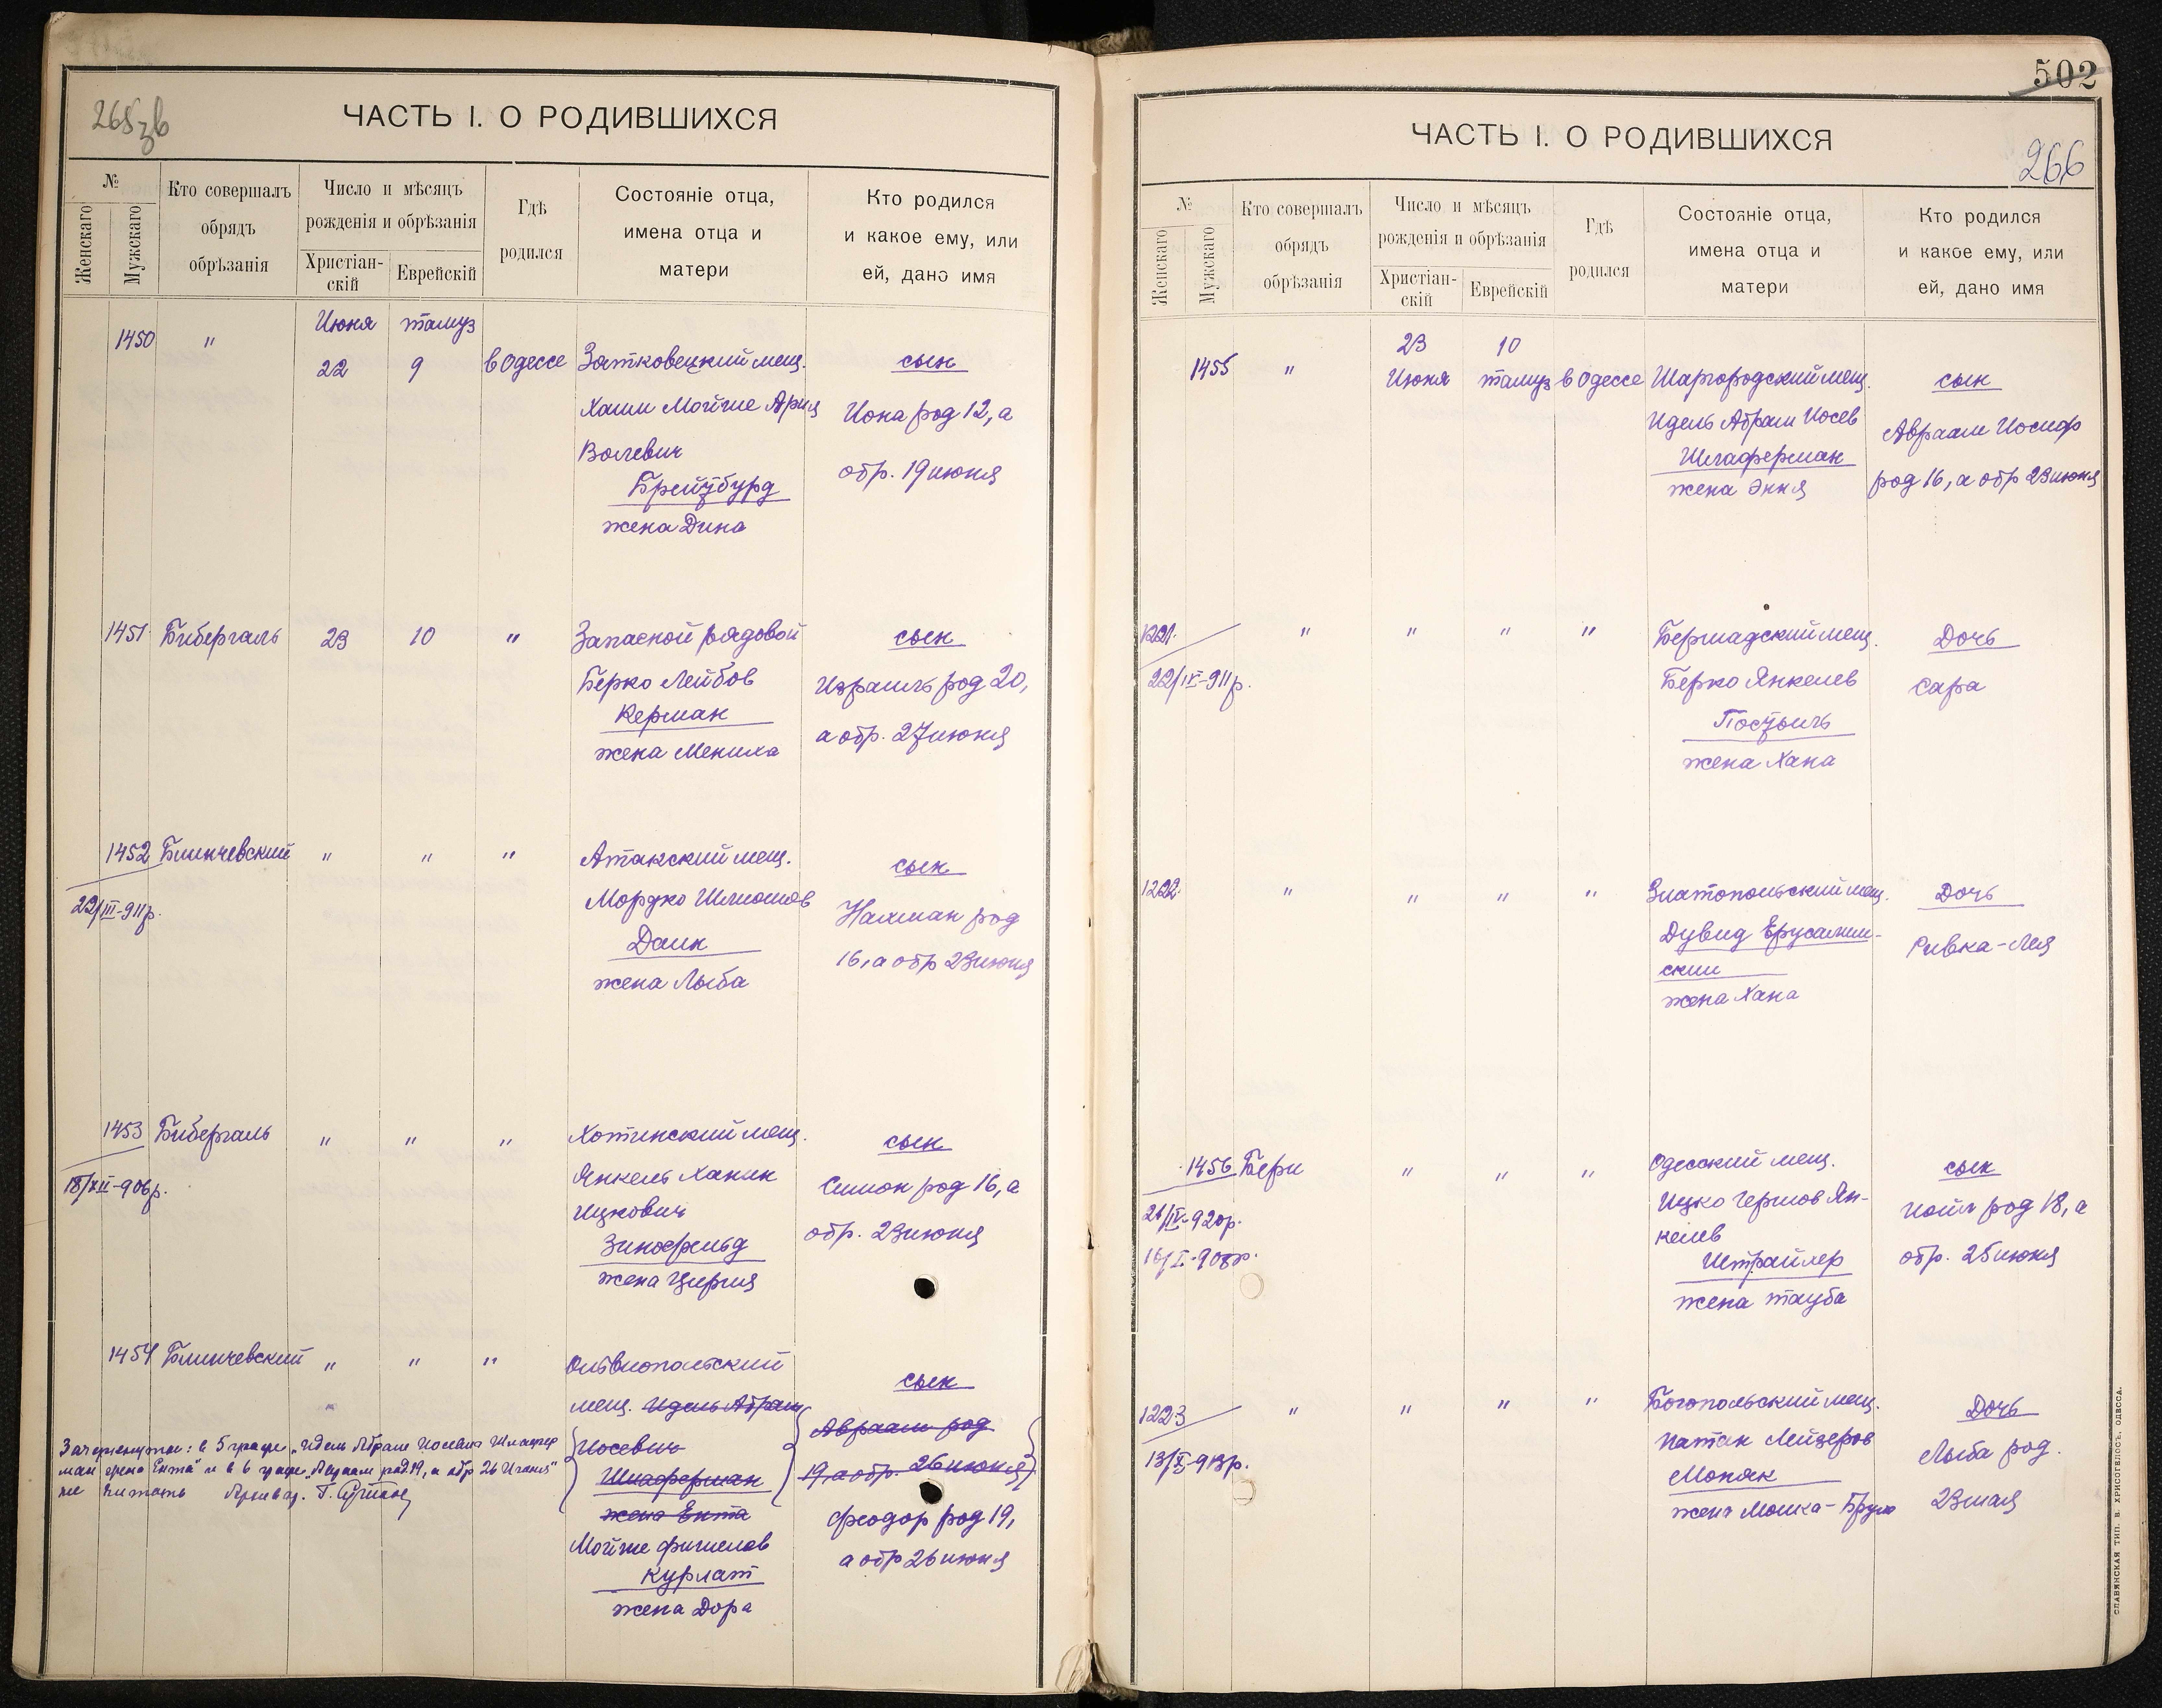 265 зв
ЧАСТЬ I. О РОДИВШИХСЯ
№
Женскаго
Мужскаго
Кто совершалъ
обрядъ
обрѣзанія
Число и мѣсяцъ
рожденія и обрѣзанія
Христіан-
скій
Еврейскій
Гдѣ
родился
Состояніе отца,
имена отца и
матери
Кто родился
и какое ему, или
ей, дано имя
Июня тамуз
1450 " 22 9 в Одессе Затковецкий мещ. сын
Хаим Мойше Ария Иона род 12, а
Волевич обр. 19 июня
Брейтбурд
жена Дина
1451 Бибергаль 23 10 " Запасной рядовой сын
Берко Лейбов Израиль род 20,
Керман а обр. 27 июня
жена Менила
1452 Блинчевский " " " Атакский мещ. сын
22/III-911 р. Мордко Шлиомов Нахман род
Даин 16, а обр 23 июня
жена Лыба
1453 Бибергаль " " " Хотинский мещ. сын
18/XII-906 р. Янкель Ханин Симон род 16, а
Ицкович обр. 23 июня
Зинфельд
жена Цирля
1454 Блинчевский " " " Ольвиопольский сын
мещ. Идель Абрам Авраам род
Иосевич 19, а обр. 26 июня
Шлаферман
жена Ента Феодор род 19,
Мойше Фишелев а обр 26 июня
Курлат
жена Дора
Зачеркнутое: в 5 графе "Идель Абрам Иосевич Шлафер
ман жена Ента" и в 6 графе "Авраам род 19, а обр 26 Июня"
не читать
502
ЧАСТЬ I. О РОДИВШИХСЯ
266
№
Женскаго
Мужскаго
Кто совершалъ
обрядъ
обрѣзанія
Число и мѣсяцъ
рожденія и обрѣзанія
Христіан-
скій
Еврейскій
Гдѣ
родился
Состояніе отца,
имена отца и
матери
Кто родился
и какое ему, или
ей, дано имя
23 10
1455 " Июня тамуз в Одессе Шаргородский мещ. сын
Идель Абрам Иосев Авраам Иосиф
Шлаферман род 16, а обр 23 июня
жена Эння
1221. " " " " Бершадский мещ. Дочь
22/IV-911 р. Берко Янкелев Сара
Постыль
жена Хана
1222. " " " " Златопольский мещ. Дочь
Дувид Ерусалим- Ривка-Лея
ский
жена Хана
1456 Бери " " " Одесский мещ. сын
21/IV-920 р. Ицко Гершов Ян- Иойл род 18, а
16/I-908 р. келев обр. 25 июня
Штрайлер
жена Тауба
1223 " " " " Богопольский мещ. Дочь
13/X-913 р. Натан Лейзеров Лыба род.
Моняк 23 мая
жена Молка-Бруха
СЛАВЯНСКАЯ ТИП. В. ХРИСОГЕЛОСЪ, ОДЕССА.